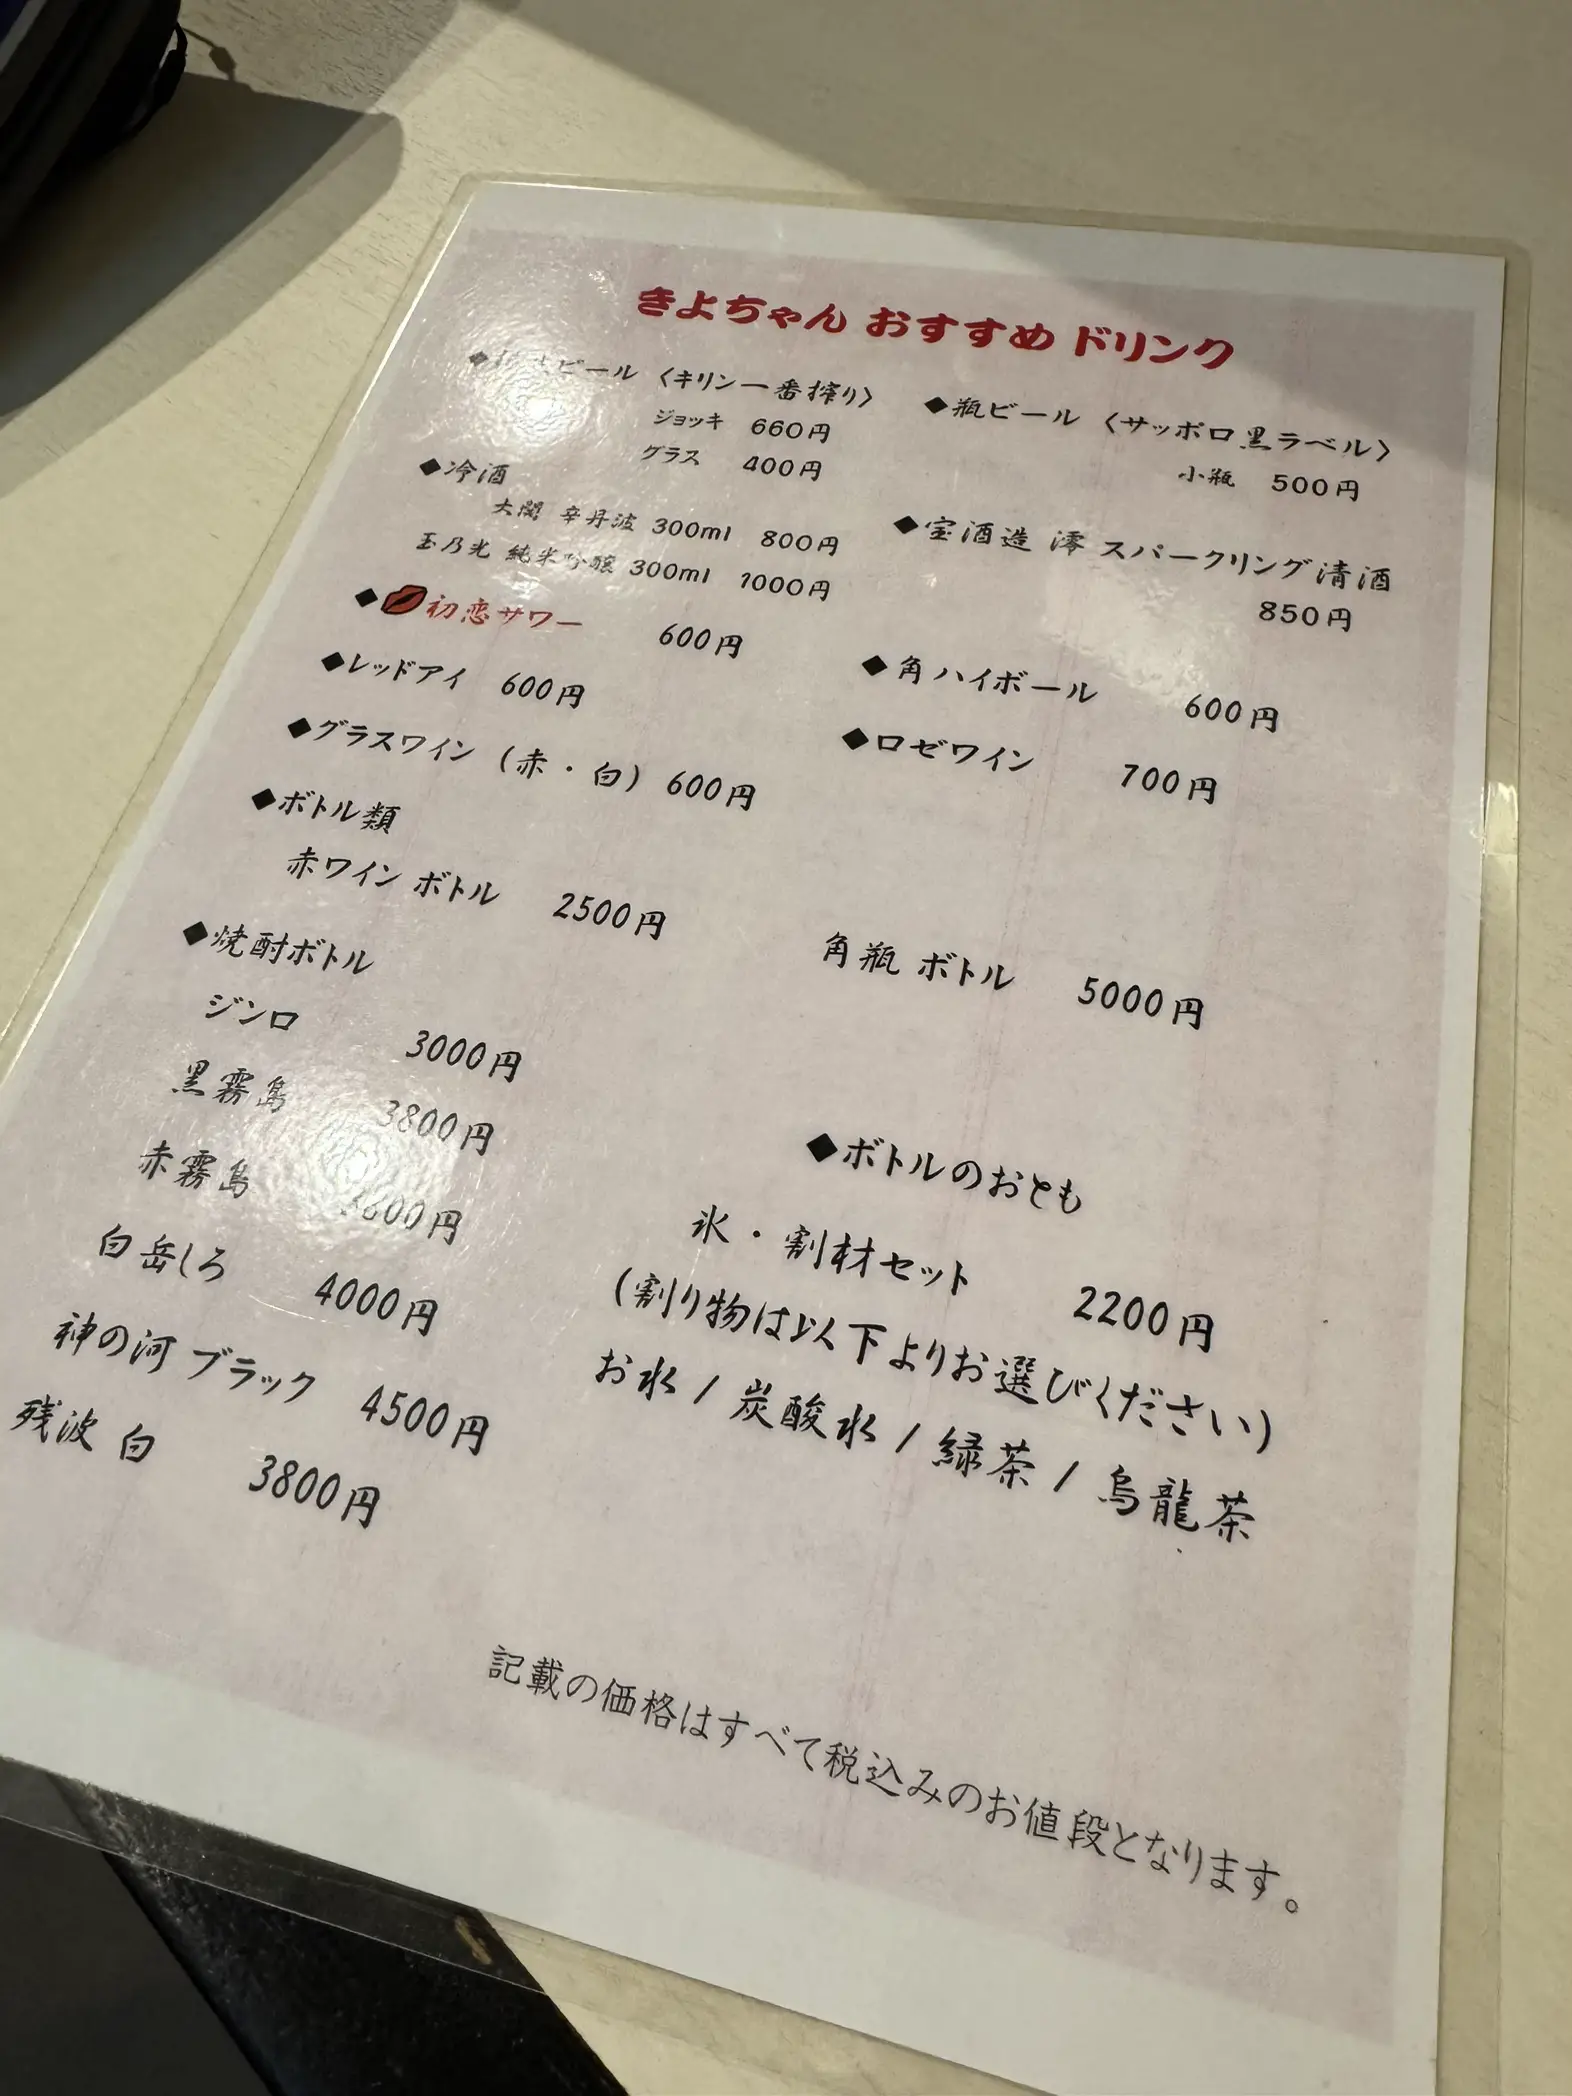 きよちゃん おすすめ ドリンク
ビール 〈キリン一番搾り〉
ジョッキ 660円
グラス 400円
◆瓶ビール 〈サッポロ黒ラベル〉
小瓶 500円
◆冷酒
大関 辛丹波 300ml 800円
玉乃光 純米吟醸 300ml 1000円
◆宝酒造 澪 スパークリング清酒
850円
◆初恋サワー 600円
◆角ハイボール 600円
◆レッドアイ 600円
◆ロゼワイン 700円
◆グラスワイン (赤・白) 600円
◆ボトル類
赤ワイン ボトル 2500円
角瓶 ボトル 5000円
◆焼酎ボトル
ジンロ 3000円
黒霧島 3800円
赤霧島
白岳しろ 4000円
神の河 ブラック 4500円
残波 白 3800円
◆ボトルのおとも
氷・割材セット 2200円
(割り物は以下よりお選びください)
お水 / 炭酸水 / 緑茶 / 烏龍茶
記載の価格はすべて税込みのお値段となります。